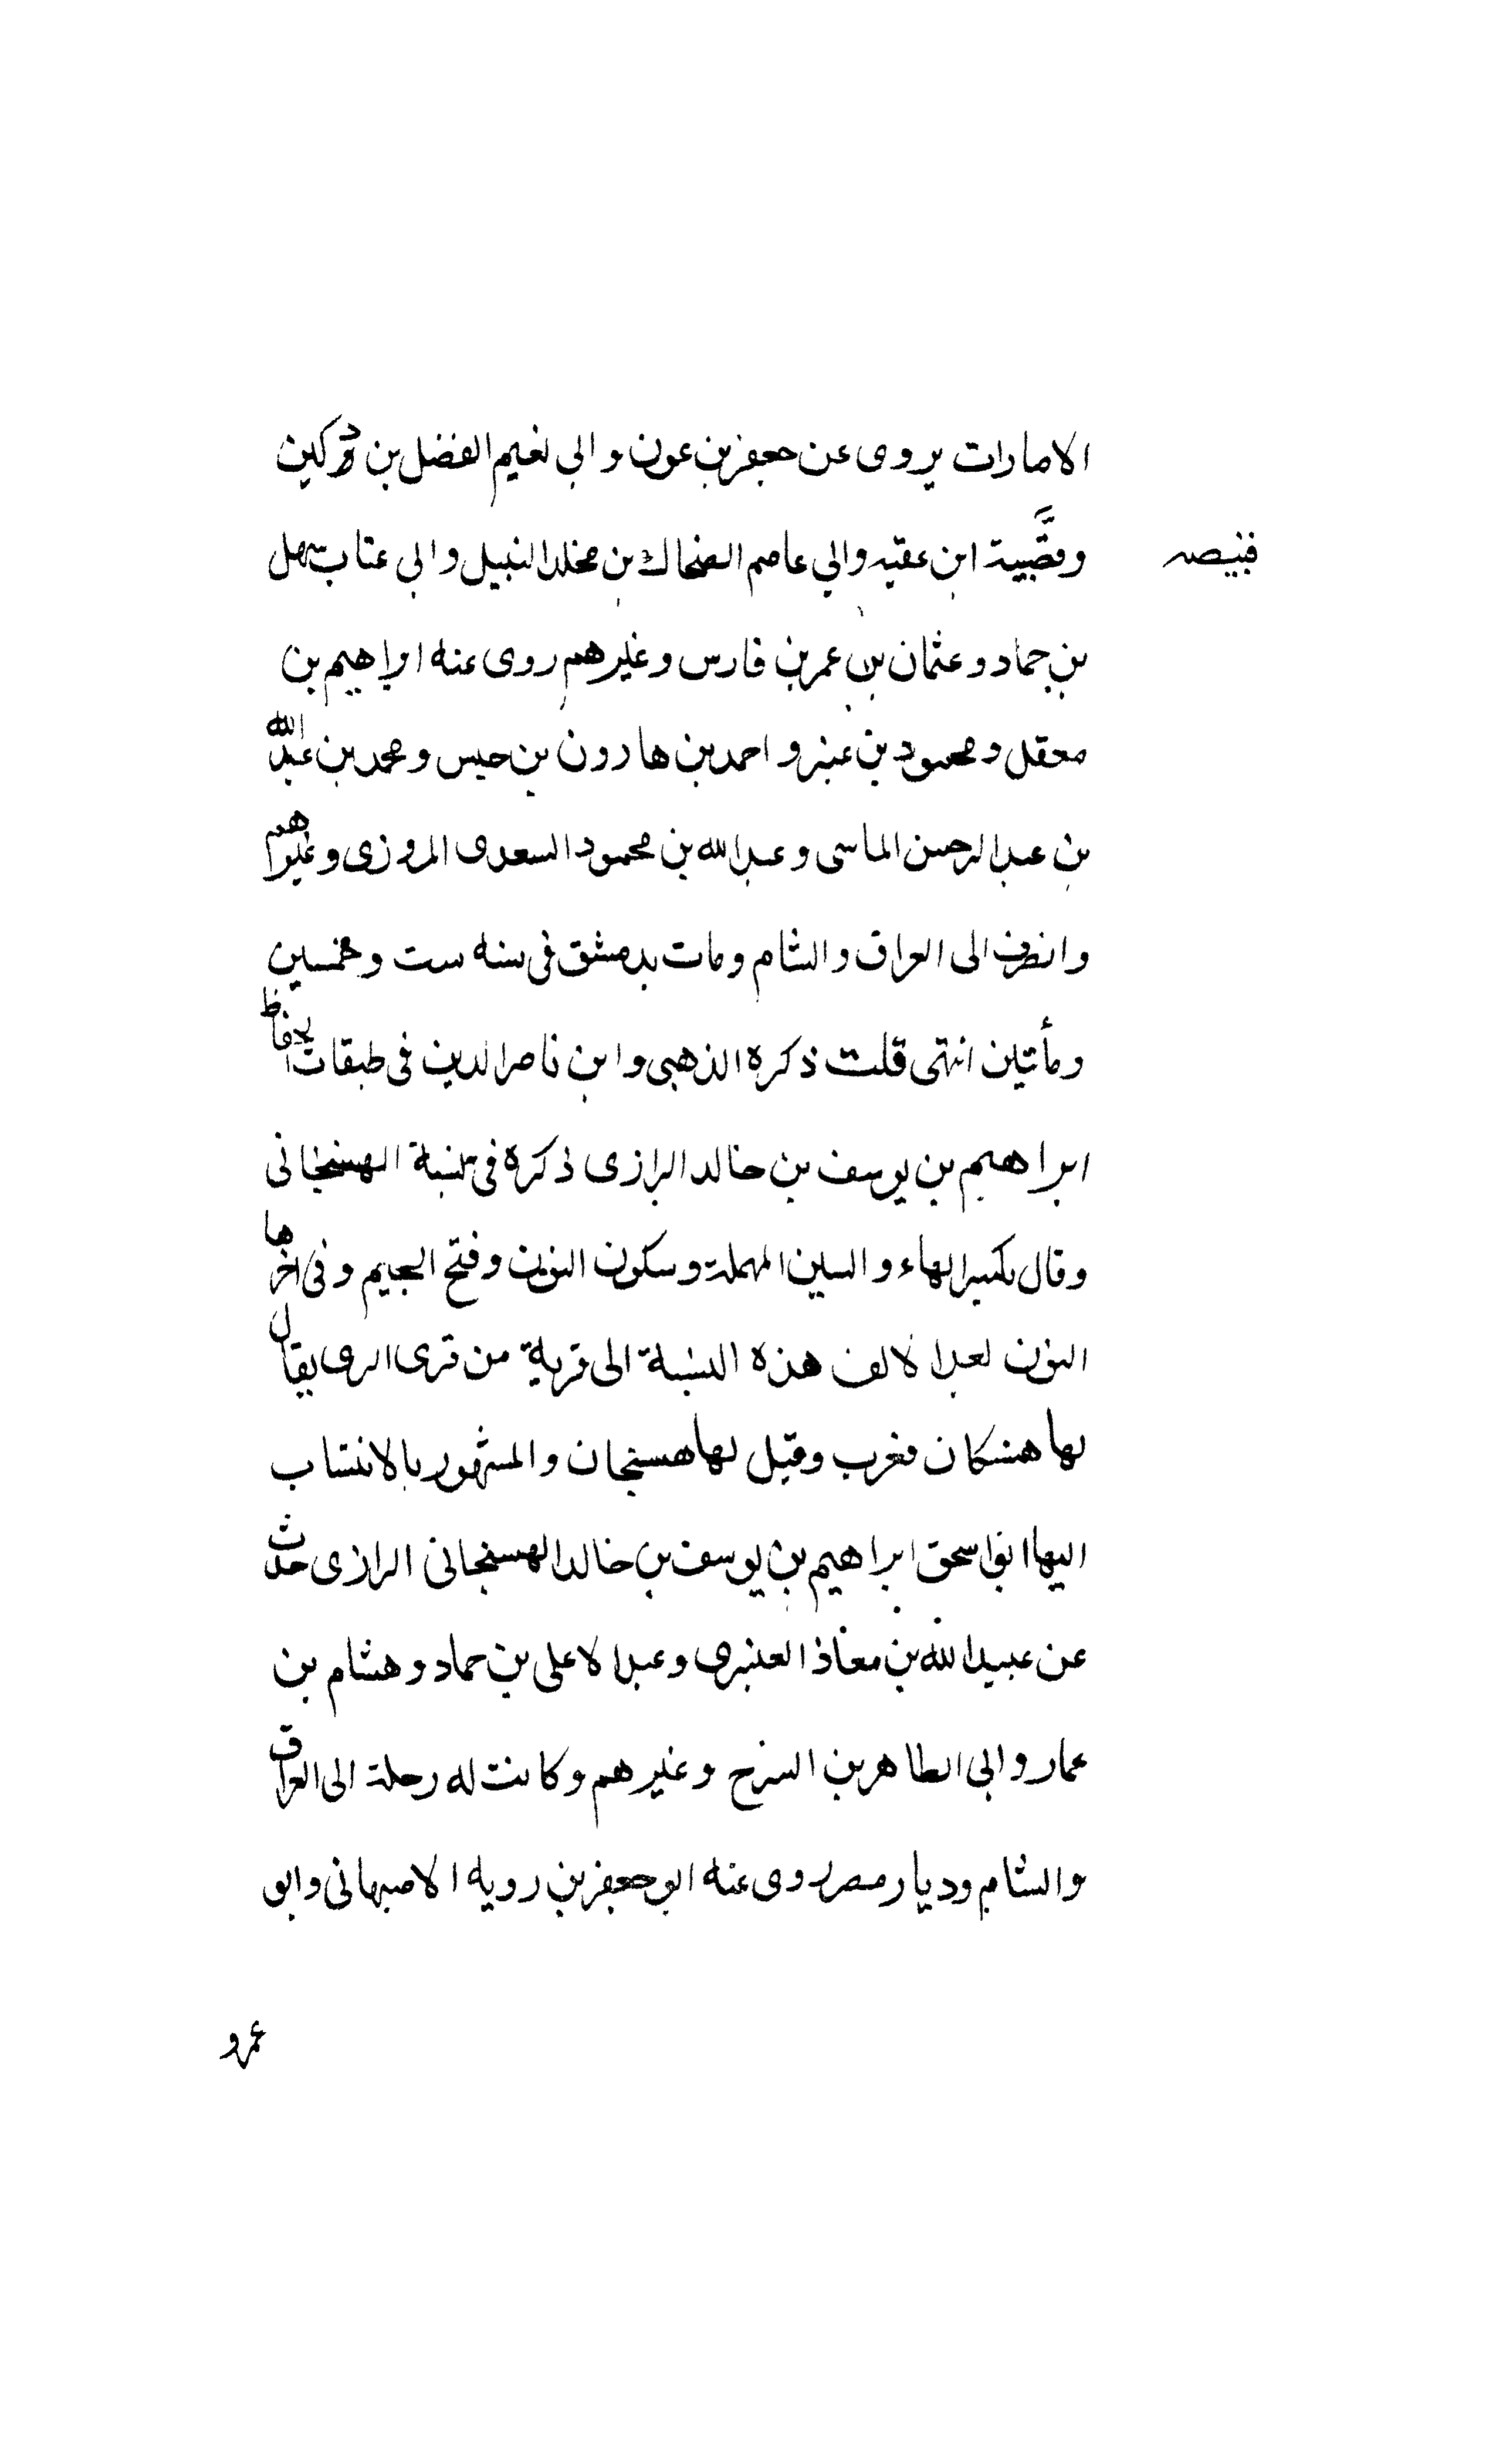 الامارات يروى عن جعفر بن عون و ابي نعيم الفضل بن دكين
وقصبية ابن عقبه وابي عاصم الضحاك بن مخلد النبيل وابي عتاب سهل
قبيصه
بن حماد و عثمان بن عمر بن فارس وغيرهم روى عنه ابراهيم بن
معقل و محمود بن عنبر و احمد بن هارون بن حبس و محمد بن عبد الله
بن عبد الرحمن الماسى وعبد الله بن محمود السعدى المروزى وغيرهم
وانصرف الى العراق والشام ومات بدمشق فى سنه ست وخمسين
ومأتين انتهى قلت ذكره الذهبى وابن ناصر الدين فى طبقات الحفاظ
ابراهيم بن يوسف بن خالد الرازى ذكره فى نسبة الهسنجانى
وقال بكسر الهاء والسين المهملة وسكون النون وفتح الجيم وفى اخرها
النون بعد الالف هذه النسبة الى قرية من قرى الرى يقال
لها هسنكان فعرب وقيل لها هسنجان والمشهور بالانتساب
اليها ابو اسحق ابراهيم بن يوسف بن خالد الهسنجانى الرازى حدث
عن عبيد الله بن معاذ العنبرى وعبد الاعلى بن حماد وهشام بن
عمار وابى الطاهر بن السرح وغيرهم وكانت له رحلة الى العراق
والشام وديار مصر روى عنه ابو جعفر بن رويه الاصبهانى وابو
عمرو